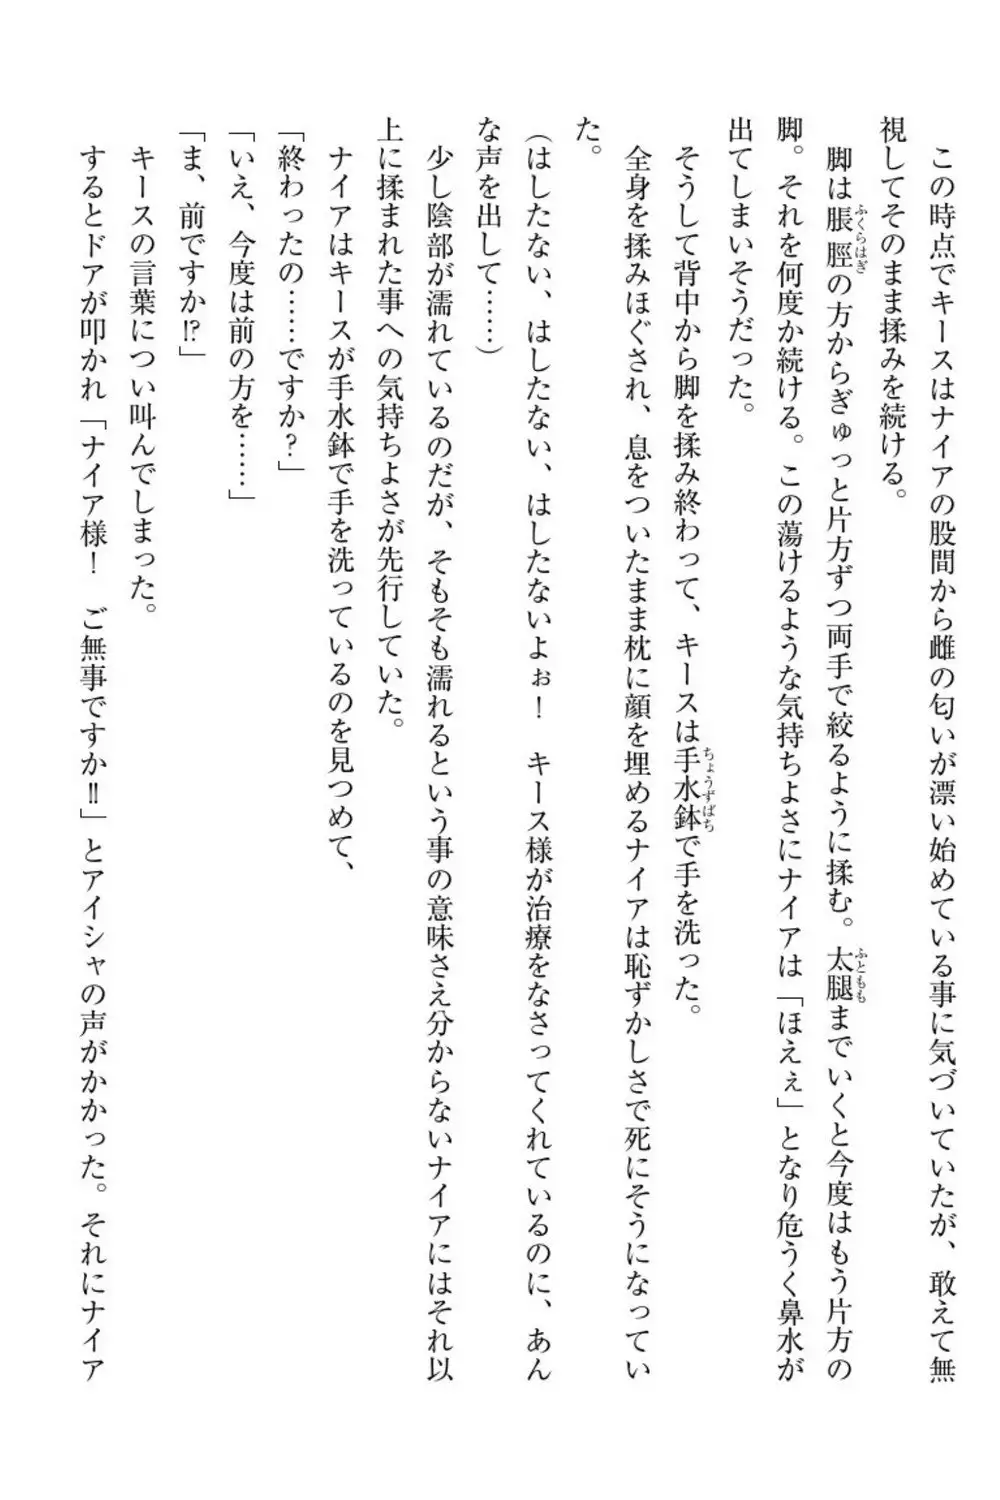 この時点でキースはナイアの股間から雌の匂いが漂い始めている事に気づいていたが、敢えて無
視してそのまま揉みを続ける。
脚は脹脛の方からぎゅっと片方ずつ両手で絞るように揉む。太腿までいくと今度はもう片方の
ふくらはぎ
ふともも
脚。それを何度か続ける。この蕩けるような気持ちよさにナイアは「ほえぇ」となり危うく鼻水が
出てしまいそうだった。
そうして背中から脚を揉み終わって、キースは手水鉢で手を洗った。
ちょうずばち
全身を揉みほぐされ、息をついたまま枕に顔を埋めるナイアは恥ずかしさで死にそうになってい
た。
（はしたない、はしたない、はしたないよぉ！　キース様が治療をなさってくれているのに、あん
な声を出して……）
少し陰部が濡れているのだが、そもそも濡れるという事の意味さえ分からないナイアにはそれ以
上に揉まれた事への気持ちよさが先行していた。
ナイアはキースが手水鉢で手を洗っているのを見つめて、
「終わったの……ですか？」
「いえ、今度は前の方を……」
「ま、前ですか!?」
キースの言葉につい叫んでしまった。
するとドアが叩かれ「ナイア様！　ご無事ですか!!」とアイシャの声がかかった。それにナイア